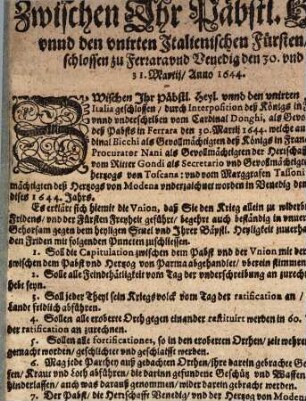 Zwischen Ihr Päbstl. H
vnnd den vnirten Italienischen Fürsten
schlossen zu Ferrara vnd Venedig den 30. vnd
31. Martij/ Anno 1644.
ZWischen Ihr Päbstl. Heyl. vnnd den vnirten
Italia geschlossen/ durch Interposition deß Königs in
vnnd vnderschrieben vom Cardinal Donghi, als Gevo
deß Pabsts in Ferrara den 30. Martij 1644. welche an
dinal Bicchi als Gevollmächtigten deß Königs in Fran
Procurator Nani als Gevollmächtigten der Herrschafft
vom Ritter Gondi als Secretario vnd Gevollmächtig
hertzogs von Toscana: vnd vom Marggrafen Tassoni
mächtigten deß Hertzogs von Modena vnderzaichnet worden in Venedig den
dises 1644. Jahrs.
Es erklärt sich hiemit die Vnion, daß Sie den Krieg allein zu widerbr
Fridens/ vnd der Fürsten Freyheit geführt/ begehrt auch beständig in vnuer
Gehorsam gegen dem heyligen Stuel vnd Ihrer Bäpstl. Heyligkeit zuuerhar
den Friden mit folgenden Puncten zuschliessen.
1. Soll die Capitulation zwischen dem Pabst vnd der Vnion mit der
zwischen dem Pabst vnd Hertzog von Parma abgehandlet/ überein stimmen
2. Solle alle Feindthätigkeit vom Tag der vnderschreibung an zurech
hebt seyn.
3. Soll jeder Theyl sein Kriegsvolck vom Tag der ratification an/
Lande fridlich abführen.
4. Sollen alle eroberte Orth gegen einander restituirt werden in 60. T
der ratification an zurechnen.
5. Sollen alle fortificationes, so in den eroberten Orthen/ zeit wehre
gemacht worden/ geschlichtet vnd geschlaifft werden.
6. Mag jede Parthey auß gedachten Orthen/ ihre darein gebrachte Ge
sen/ Kraut vnd Loth abführen/ die darinn gefundne Geschütz vnd Waffen
hinderlassen/ auch was darauß genommen/ wider darein gebracht werden.
7. Der Pabst/ die Herrschafft Venedig/ vnd der Hertzog von Moden